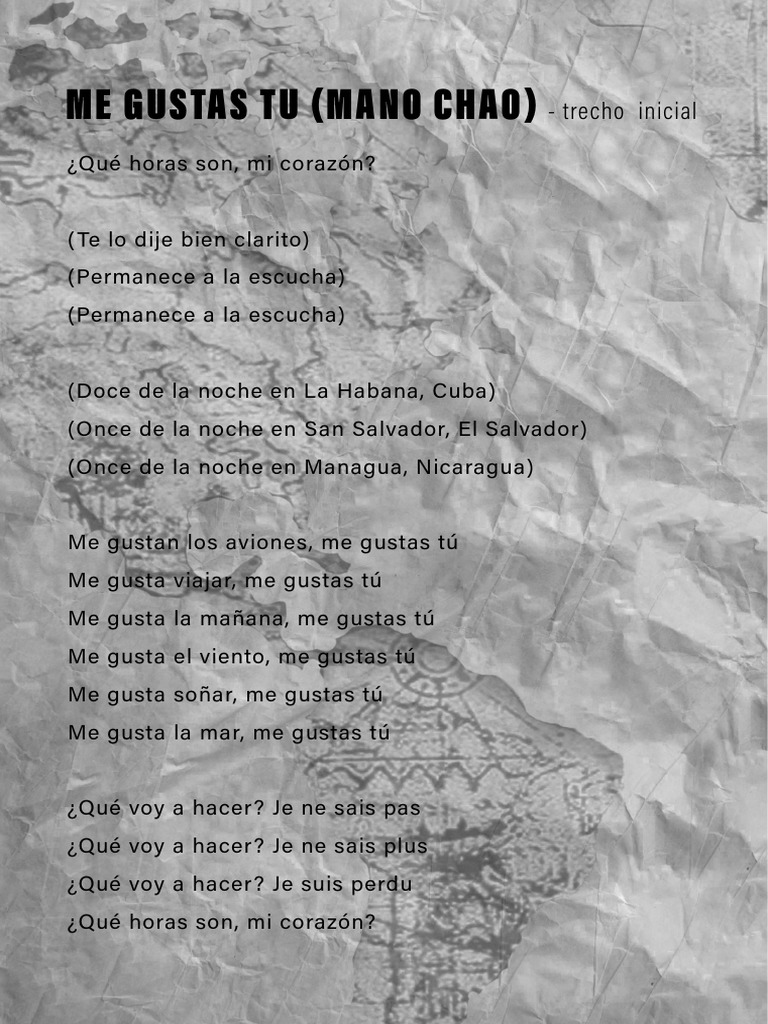 ME GUSTAS TU (MANO CHAO) - trecho inicial
¿Qué horas son, mi corazón?
(Te lo dije bien clarito)
(Permanece a la escucha)
(Permanece a la escucha)
(Doce de la noche en La Habana, Cuba)
(Once de la noche en San Salvador, El Salvador)
(Once de la noche en Managua, Nicaragua)
Me gustan los aviones, me gustas tú
Me gusta viajar, me gustas tú
Me gusta la mañana, me gustas tú
Me gusta el viento, me gustas tú
Me gusta soñar, me gustas tú
Me gusta la mar, me gustas tú
¿Qué voy a hacer? Je ne sais pas
¿Qué voy a hacer? Je ne sais plus
¿Qué voy a hacer? Je suis perdu
¿Qué horas son, mi corazón?